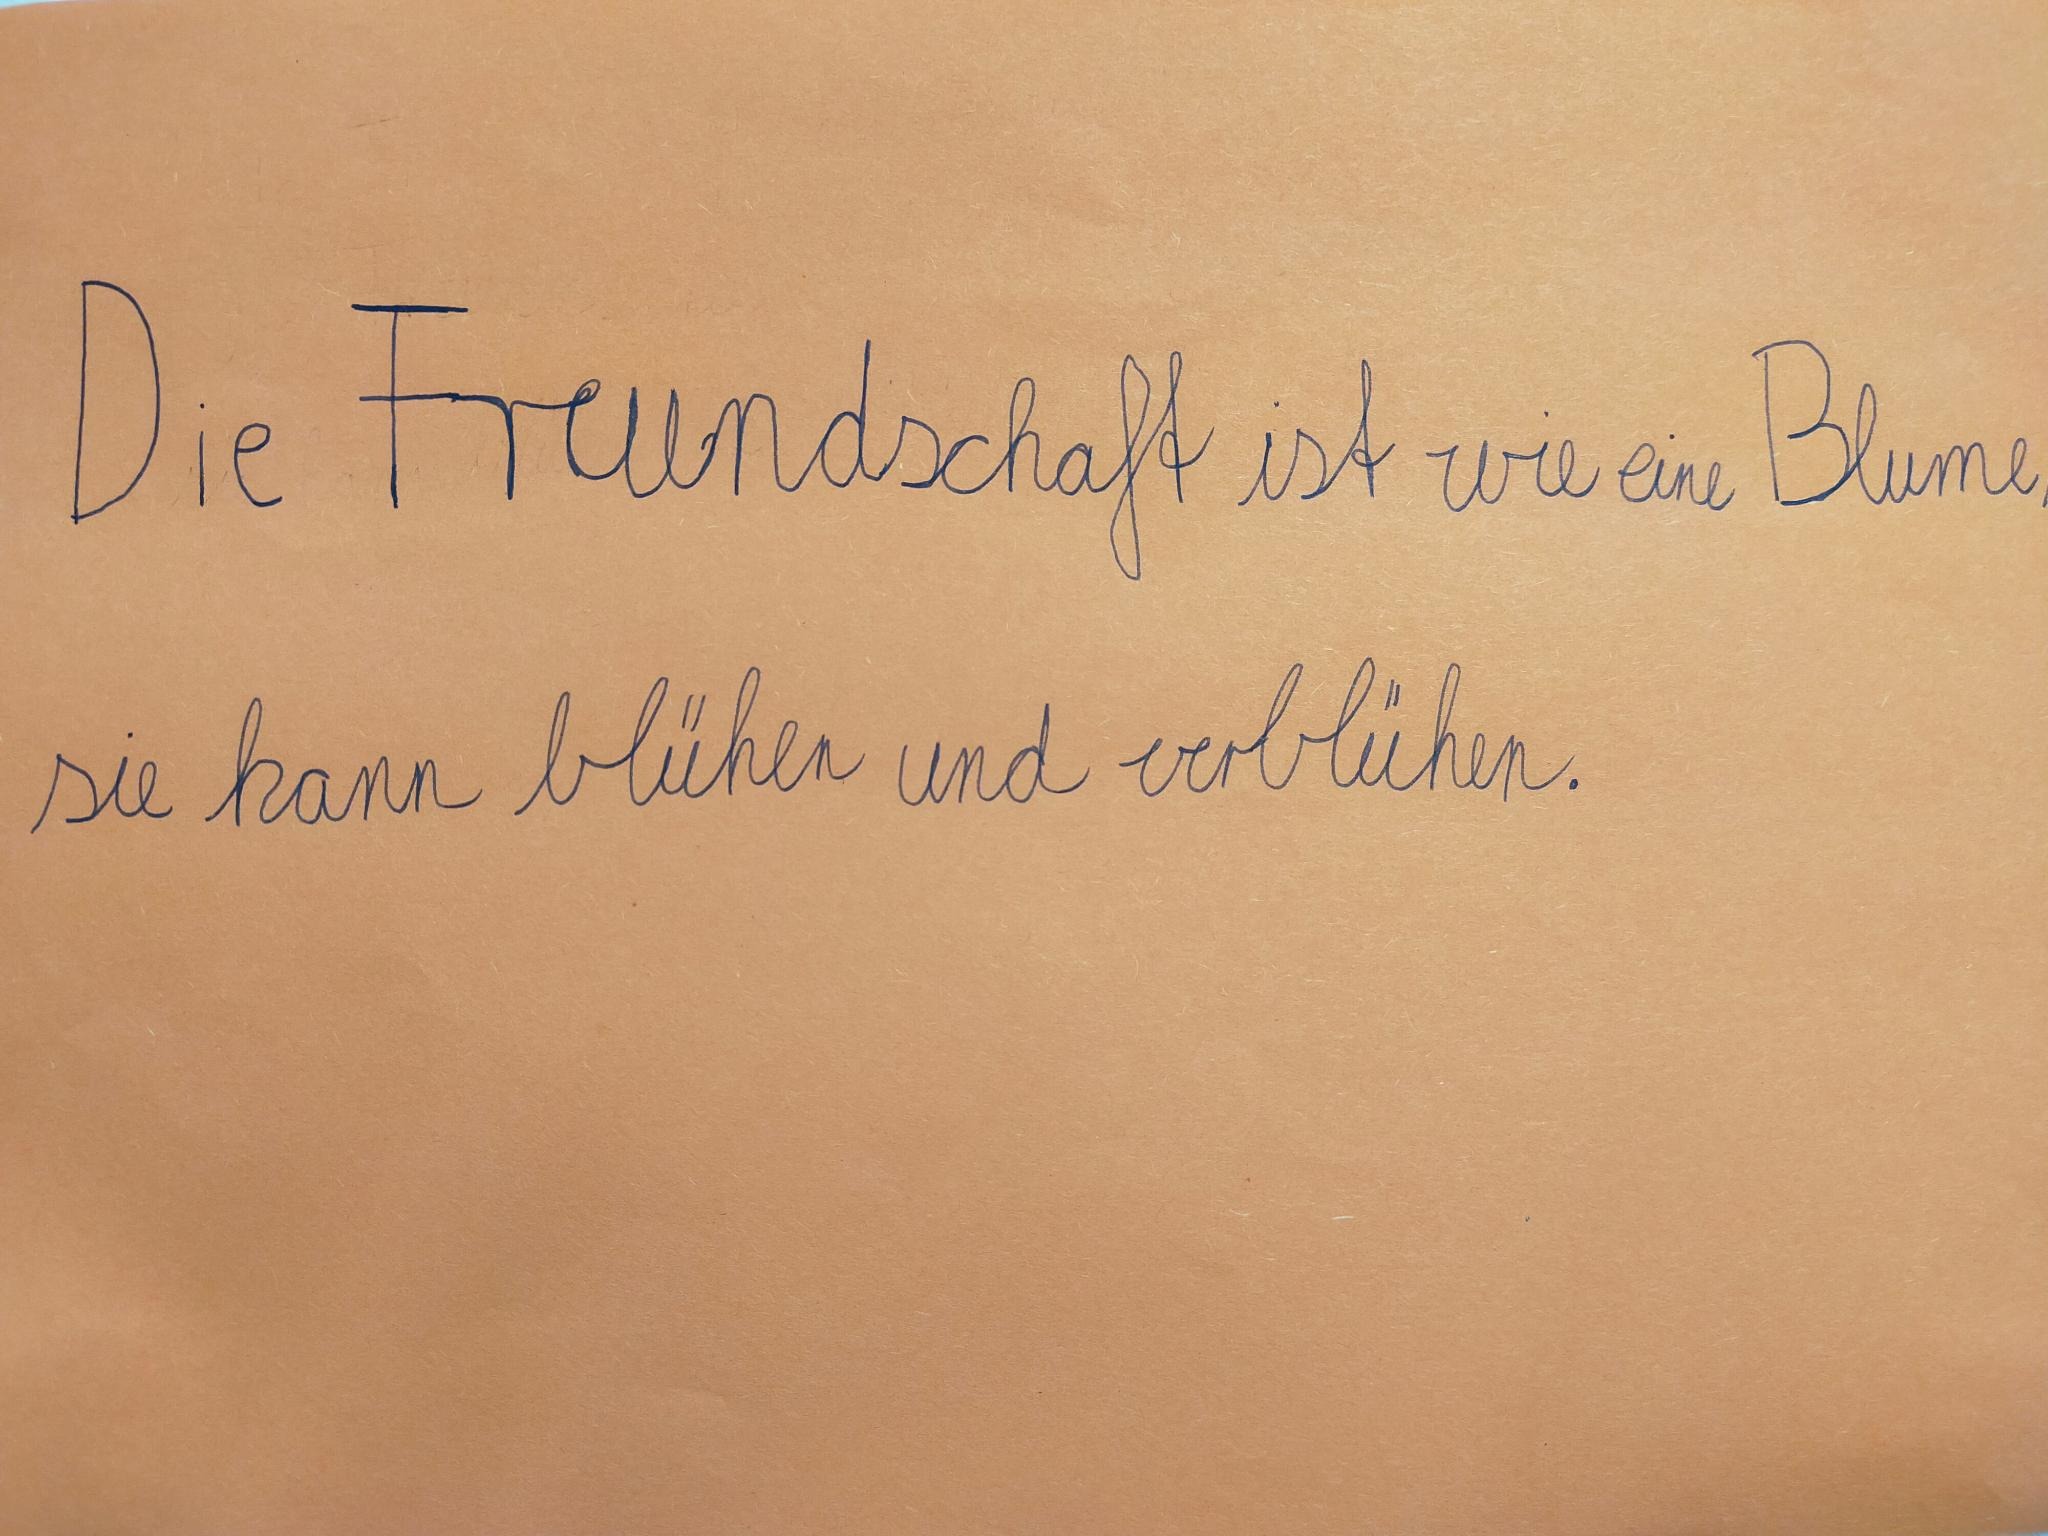 Die Freundschaft ist wie eine Blume,
sie kann blühen und verblühen.